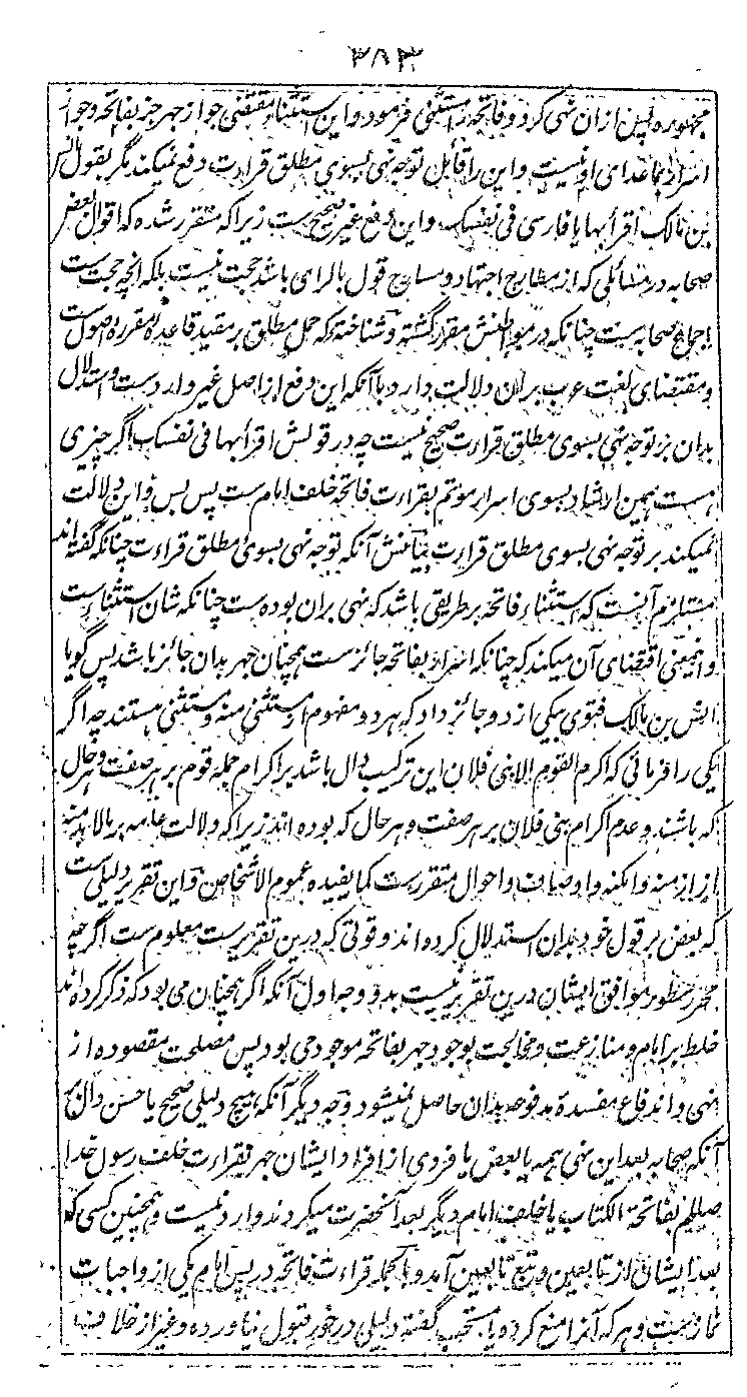 ۳۸۳
مجهوره پس ازان نهی کرد و فاتحه را مستثنی فرمود و این استثناء مقتضی جواز جهر جز بفاتحه و جواز
اسرار بماعدای او نیست و این را قابل توجه نهی بسوی مطلق قراءت دفع نمیکند مگر بقول انس
بن مالک اقرأ بها یا فارسی فی نفسک و این دفع غیر صحیح ست زیرا که متقرر شده که اقوال بعض
صحابه در مسائلی که از مطارح اجتهاد و مسارح قول بالرای باشد حجت نیست بلکه آنچه حجت ست
اجماع صحابه ست چنانکه در مواطنش مقرر گشته و شناخته که حمل مطلق بر مقید قاعده مقرره اصول ست
و مقتضای لغت عرب بران دلالت دارد باآنکه این دفع از اصل غیر وارد ست و استدلال
بدان بر توجه نهی بسوی مطلق قراءت صحیح نیست چه در قولش اقرأ بها فی نفسک اگر چیزی
هست همین ارشاد بسوی اسرار موتم بقراءت فاتحه خلف امام ست پس بس و این دلالت
نمیکند بر توجه نهی بسوی مطلق قراءت بیانش آنکه توجه نهی بسوی مطلق قراءت چنانکه گفته اند
مستلزم آنست که استثناء فاتحه بر طریقی باشد که نهی بران بوده ست چنانکه شان استثناء ست
و اینمعنی اقتضای آن میکند که چنانکه اسرار بفاتحه جائز ست همچنان جهر بدان جائز باشد پس گویا
انس بن مالک فتوی بیکی از دو جائز داد که هر دو مفهوم از مستثنی منه و مستثنی هستند چه اگر
یکی را فرمائی که اکرم القوم الا بنی فلان این ترکیب دال باشد بر اکرام جمله قوم بر هر صفت و هر حال
که باشند و عدم اکرام بنی فلان بر هر صفت و هر حال که بوده اند زیرا که دلالت عامه بر مالابد منه
از ازمنه و امکنه و اوصاف و احوال متقرر ست کما یفیده عموم الاشخاص و این تقریر دلیلی ست
که بعض بر قول خود بدان استدلال کرده اند و قوتی که درین تقریر ست معلوم ست اگر چه
محرر سطور موافق ایشان درین تقریر نیست بدو وجه اول آنکه اگر همچنان می بود که ذکر کرده اند
خلط بر امام و منازعت و مخالجت بوجود جهر بفاتحه موجود می بود پس مصلحت مقصوده از
نهی و اندفاع مفسده مدفوعه بدان حاصل نمیشود وجه دیگر آنکه هیچ دلیلی صحیح یا حسن دال بر
آنکه صحابه بعد این نهی همه یا بعض یا فردی از افراد ایشان جهر بقراءت خلف رسول خدا
صللم بفاتحة الکتاب یا خلف امام دیگر بعد آنحضرت میکردند وارد نیست و همچنین کسی که
بعد ایشان از تابعین و تبع تابعین آمد و بالجمله قراءت فاتحه در پس امام یکی از واجبات
نماز ست و هر که آنرا منع کرد و یا مستحب گفته دلیلی در خور قبول نیاورده و غیر از خلاف